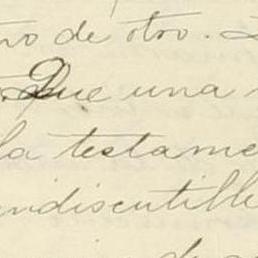 no de otro.
Que una
la testame
indiscutible